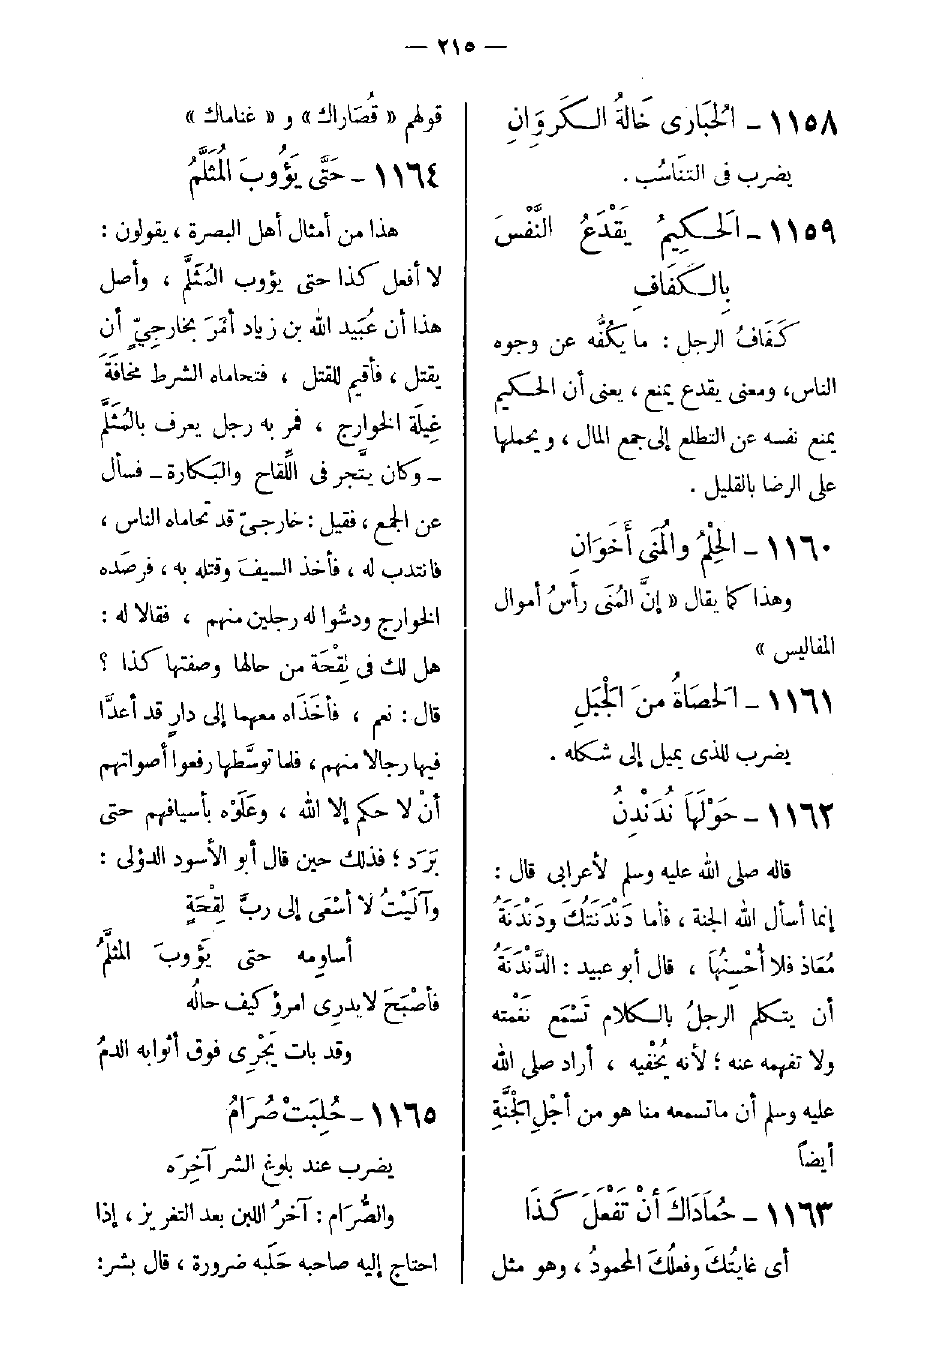 — ٢١٥ —
١١٥٨ - الْحُبَارَى خَالَةُ الْكَرَوَانِ
يضرب فى التناسُب .
١١٥٩ - الْحَكِيمُ يَقْدَعُ النَّفْسَ
بِالْكَفَافِ
كَفَافُ الرجل : ما يكُفُّه عن وجوه
الناس، ومعنى يقدع يمنع ، يعنى أن الحكيم
يمنع نفسه عن التطلع إلى جمع المال ، ويحملها
على الرضا بالقليل .
١١٦٠ - الحِلْمُ والْمُنَى أَخَوَانِ
وهذا كما يقال « إنَّ المُنَى رأسُ أموال
المفاليس »
١١٦١ - الْحَصَاةُ مِنَ الْجَبَلِ
يضرب للذى يميل إلى شكله .
١١٦٢ - حَوْلَهَا نُدَنْدِنُ
قاله صلى الله عليه وسلم لأعرابى قال :
إنما أسأل الله الجنة ، فأما دَنْدَنَتُكَ ودَنْدَنَةُ
مُعَاذ فلا أُحْسِنُهَا ، قال أبو عبيد : الدَّنْدَنَةُ
أن يتكلم الرجلُ بالكلام تَسْمَع نَغْمته
ولا تفهمه عنه ؛ لأنه يُخْفيه ، أراد صلى الله
عليه وسلم أن ماتسمعه منا هو من أجْلِ الْجَنَّةِ
أيضاً
١١٦٣ - حُمَادَاكَ أنْ تَفْعَلَ كَذَا
أى غايتُكَ وفعلُكَ المحمودُ ، وهو مثل
قولهم « قُصَاراك » و « غناماك »
١١٦٤ - حَتَّى يَؤُوبَ الْمُثَلَّمُ
هذا من أمثال أهل البصرة ، يقولون :
لا أفعل كذا حتى يؤوب المُثَلَّم ، وأصل
هذا أن عُبَيد الله بن زياد أمَرَ بخارجىّ أن
يقتل ، فأقيم للقتل ، فتحاماه الشرط مخافَةَ
غِيلَة الخوارج ، فمر به رجل يعرف بالمُثَلَّم
- وكان يتَّجر فى اللِّقاح والبَكارة - فسأل
عن الجمع ، فقيل : خارجىّ قد تحاماه الناس ،
فانتدب له ، فأخذ السيفَ وقتله به ، فرصَده
الخوارج ودسُّوا له رجلين منهم ، فقالا له :
هل لك فى لِقْحَة من حالها وصفتها كذا ؟
قال : نعم ، فأخَذَاه معهما إلى دارٍ قد أعدَّا
فيها رجالا منهم ، فلما توسَّطها رفعوا أصواتهم
أنْ لا حكم إلا الله ، وعَلَوْه بأسيافهم حتى
بَرَد ؛ فذلك حين قال أبو الأسود الدؤلى :
وآلَيْتُ لا أسْعَى إلى ربِّ لِقْحَةٍ
أساوِمه حتى يَؤُوبَ المثلَّمُ
فأصْبَحَ لا يدرِى امرؤ كيف حالُه
وقد بات يَجْرِى فوق أثوابه الدمُ
١١٦٥ - حُلِبَتْ صُرَامُ
يضرب عند بلوغ الشر آخِرَه
والصُّرَام : آخرُ اللبن بعد التغريز ، إذا
احتاج إليه صاحبه حَلَبه ضرورة ، قال بشر: